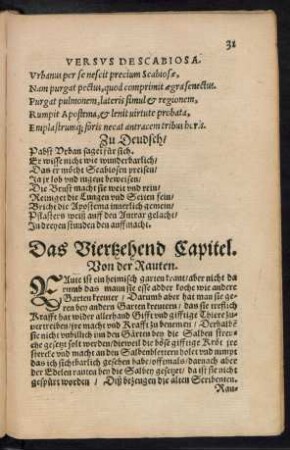 31
VERSVS DE SCABIOSA.
Vrbanus per se nescit precium Scabiosæ,
Nam purgat pectus, quod comprimit ægra senectus.
Purgat pulmonem, lateris simul & regionem,
Rumpit Apostema, & lenit uirtute probata,
Emplastrumq; foris necat antracem tribus horis.
Zu Deudsch/
Pabst Vrban saget für sich.
Er wisse nicht wie wunderbarlich/
Das er möcht Scabiosen preisen/
Ja jr lob vnd jugent beweisen:
Die Brust macht sie weit vnd rein/
Reiniget die Lungen vnd Seiten fein/
Bricht die Apostema innerlich gemein/
Pflasters weiß auff den Antrax gelacht/
In dreyen stunden den auffmacht.
Das Viertzehend Capitel.
Von der Rauten.
Raute ist ein heimisch garten kraut/ aber nicht da
rumb das mann sie esse adder koche wie andere
Garten kreuter / Darumb aber hat man sie ge-
ren bey andern Garten kreutern / das sie trefflich
Krafft hat wider allerhand Gifft vnd gifftige Thiere zu
uertreiben/ jre macht vnd Krafft zu benemen / Derhalb
sie nicht vnbillich jnn den Gärten bey die Salben
che gesetzt solt werden/ dieweil die böse gifftige Kröt jre
vnd macht an den Salbenblettern holet vnd nimpt
das ich sichtbarlich gesehen habe/ offtmals/ darnach aber
der Edelen rauten bey die Salbey gesetzt/ da ist sie nicht
gespürt worden / Diß bezeugen die alten Scribenten.
Rau-